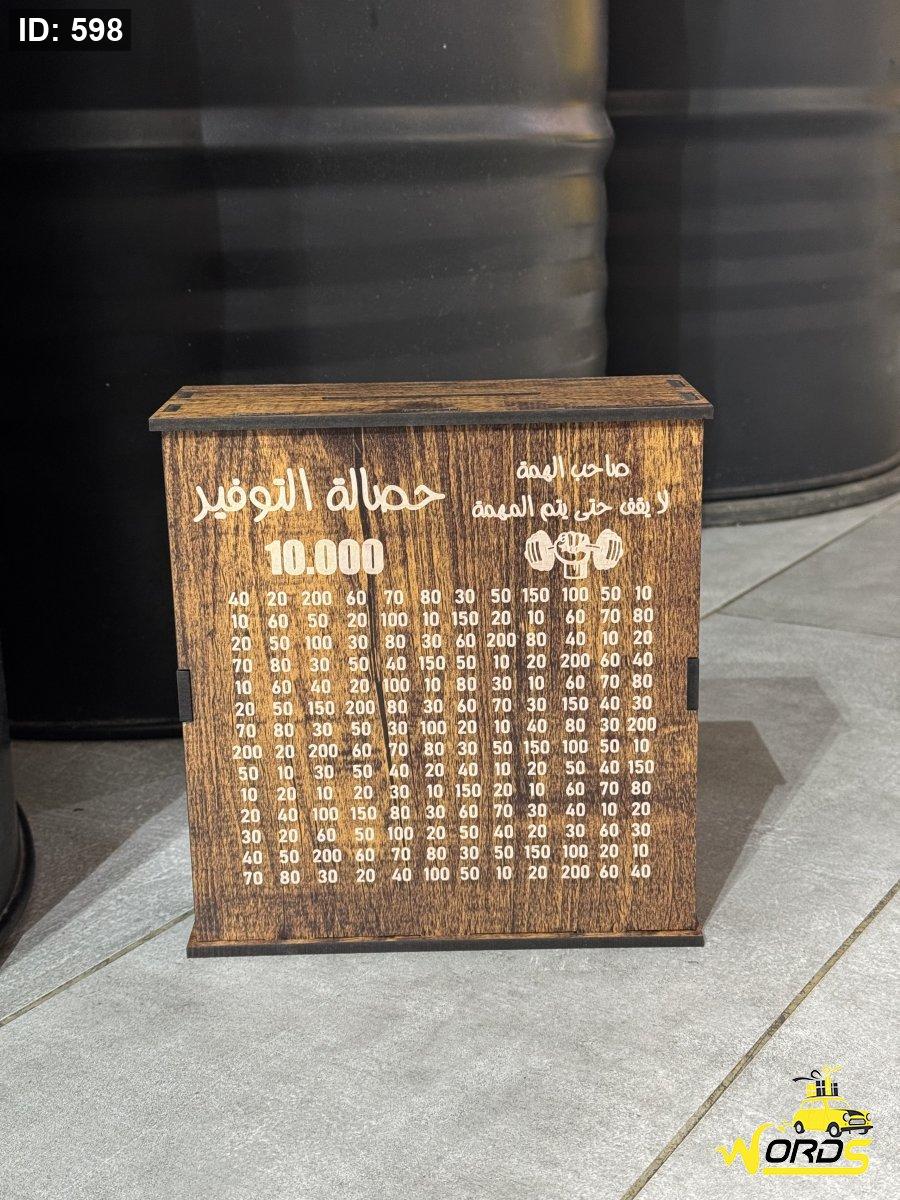 ID: 598
حصالة التوفير
10.000
صاحب الهمة
لا يقف حتى يتم المهمة
40 20 200 60 70 80 30 50 150 100 50 10
10 60 50 20 100 10 150 20 10 60 70 80
20 50 100 30 80 30 60 200 80 40 10 20
70 80 30 50 40 150 50 10 20 200 60 40
10 60 40 20 100 10 80 30 10 60 70 80
20 50 150 200 80 30 60 70 30 150 40 30
70 80 30 50 30 100 20 10 40 80 30 200
200 20 200 60 70 80 30 50 150 100 50 10
50 10 30 50 40 20 40 10 20 50 40 150
10 20 10 20 30 10 150 20 10 60 70 80
20 40 100 150 80 30 60 70 30 40 10 20
30 20 60 50 100 20 50 40 20 30 60 30
40 50 200 60 70 80 30 50 150 100 20 10
70 80 30 20 40 100 50 10 20 200 60 40
WORDS